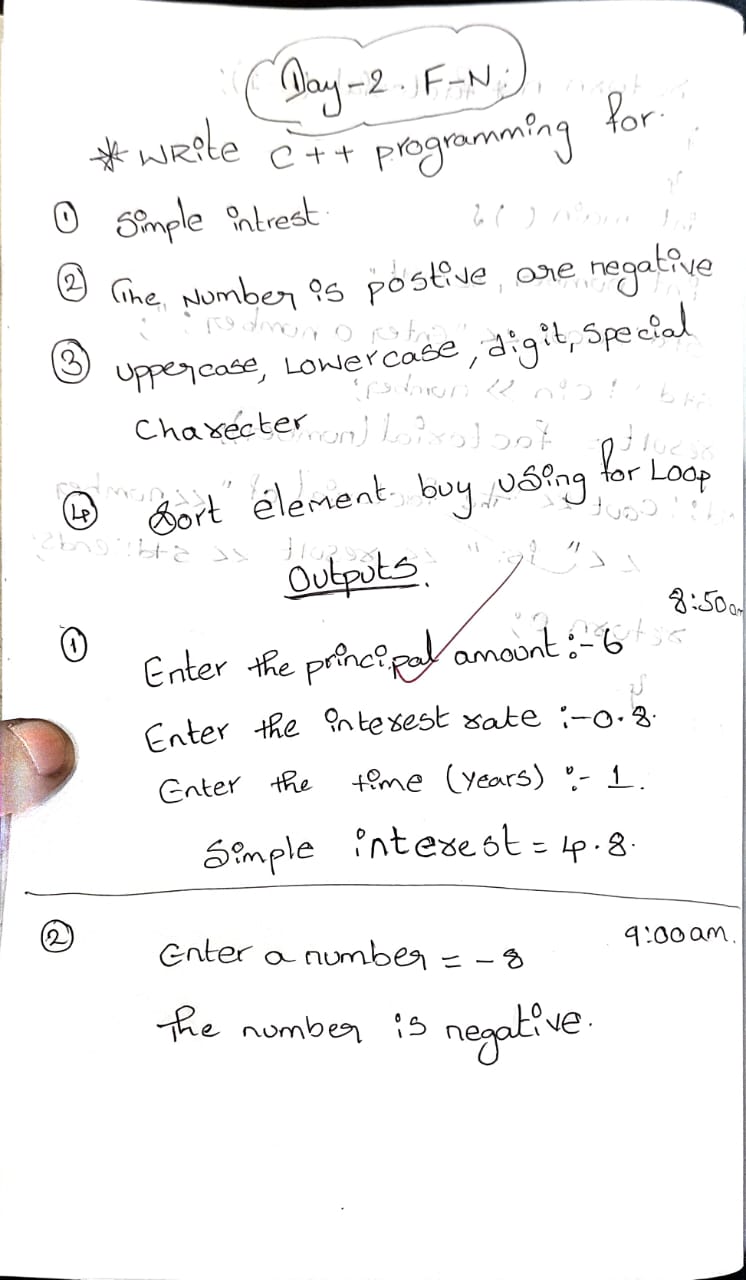 Day-2. F-N:
* WRite C++ programming for.
① Simple intrest.
② The Number is postive, are negative
③ uppercase, Lowercase, digit, Special
Charecter
④ Sort element buy using for Loop
Outputs.
8:50am
① Enter the principal amount :- 6
Enter the interest rate :- 0.8.
Enter the time (years) :- 1.
Simple interest = 4.8.
② 9:00am.
Enter a number = -8
The number is negative.